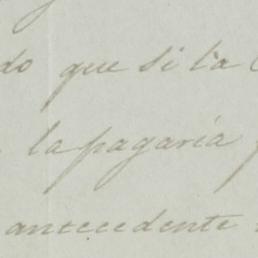 do que si la
la pagaría
antecedente